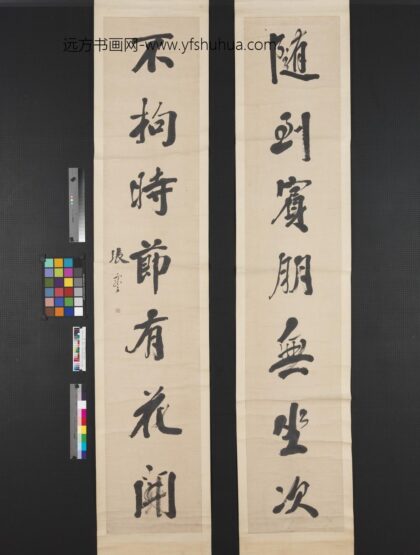 远方书画网-www.yfshuhua.com
随到賓朋無坐次
不拘時節有花開
張